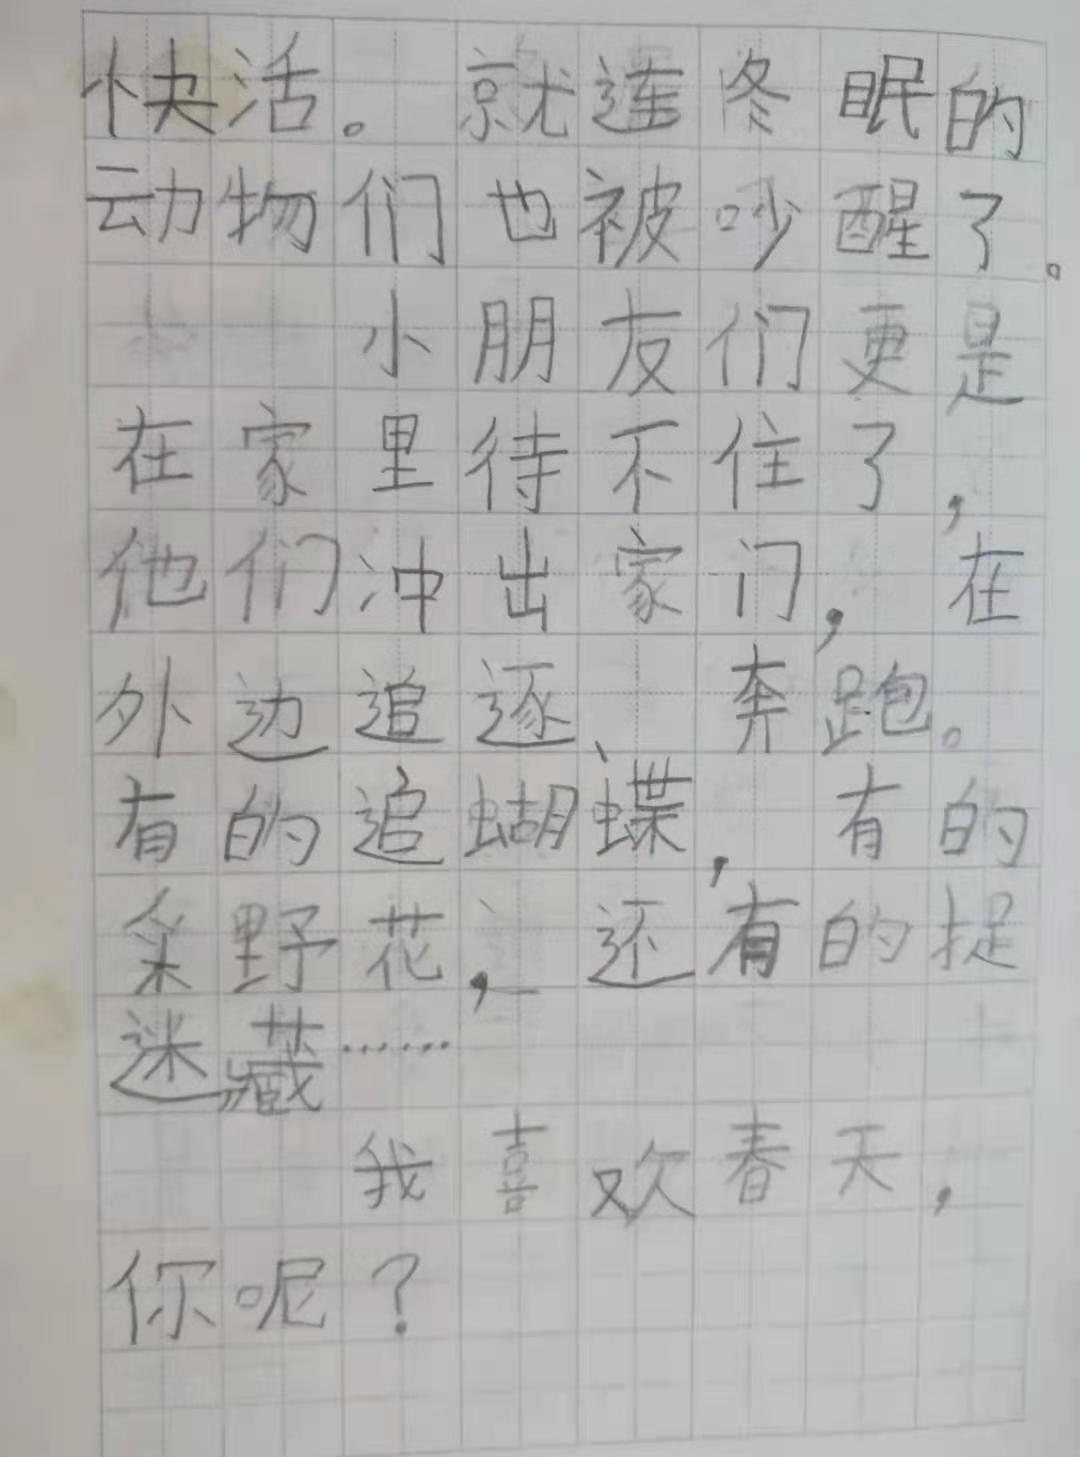 快活。就连冬眠的
动物们也被吵醒了。
小朋友们更是
在家里待不住了，
他们冲出家门，在
外边追逐、奔跑。
有的追蝴蝶，有的
采野花，还有的捉
迷藏……
我喜欢春天，
你呢？